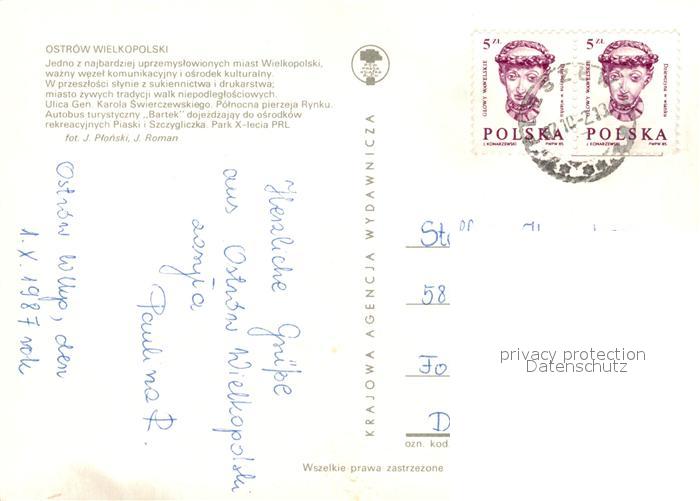 OSTRÓW WIELKOPOLSKI
Jedno z najbardziej uprzemysłowionych miast Wielkopolski,
ważny węzeł komunikacyjny i ośrodek kulturalny.
W przeszłości słynie z sukiennictwa i drukarstwa;
miasto żywych tradycji walk niepodległościowych.
Ulica Gen. Karola Świerczewskiego. Północna pierzeja Rynku.
Autobus turystyczny „Bartek" dojeżdżający do ośrodków
rekreacyjnych Piaski i Szczygliczka. Park X-lecia PRL
fot. J. Płoński, J. Roman
Ostrów Wlkp, den
1. X. 1987 rok
Herzliche Grüße
aus Ostrów Wielkopolski
Paulina P.
KRAJOWA AGENCJA WYDAWNICZA
5 ZŁ
GŁOWY WAWELSKIE
POLSKA
J. KONARZEWSKI PWPW 85
5 ZŁ
GŁOWY WAWELSKIE
Dziewczyna w wianku
POLSKA
J. KONARZEWSKI PWPW 85
58
Fo
D
ozn. kod
privacy protection
Datenschutz
Wszelkie prawa zastrzeżone